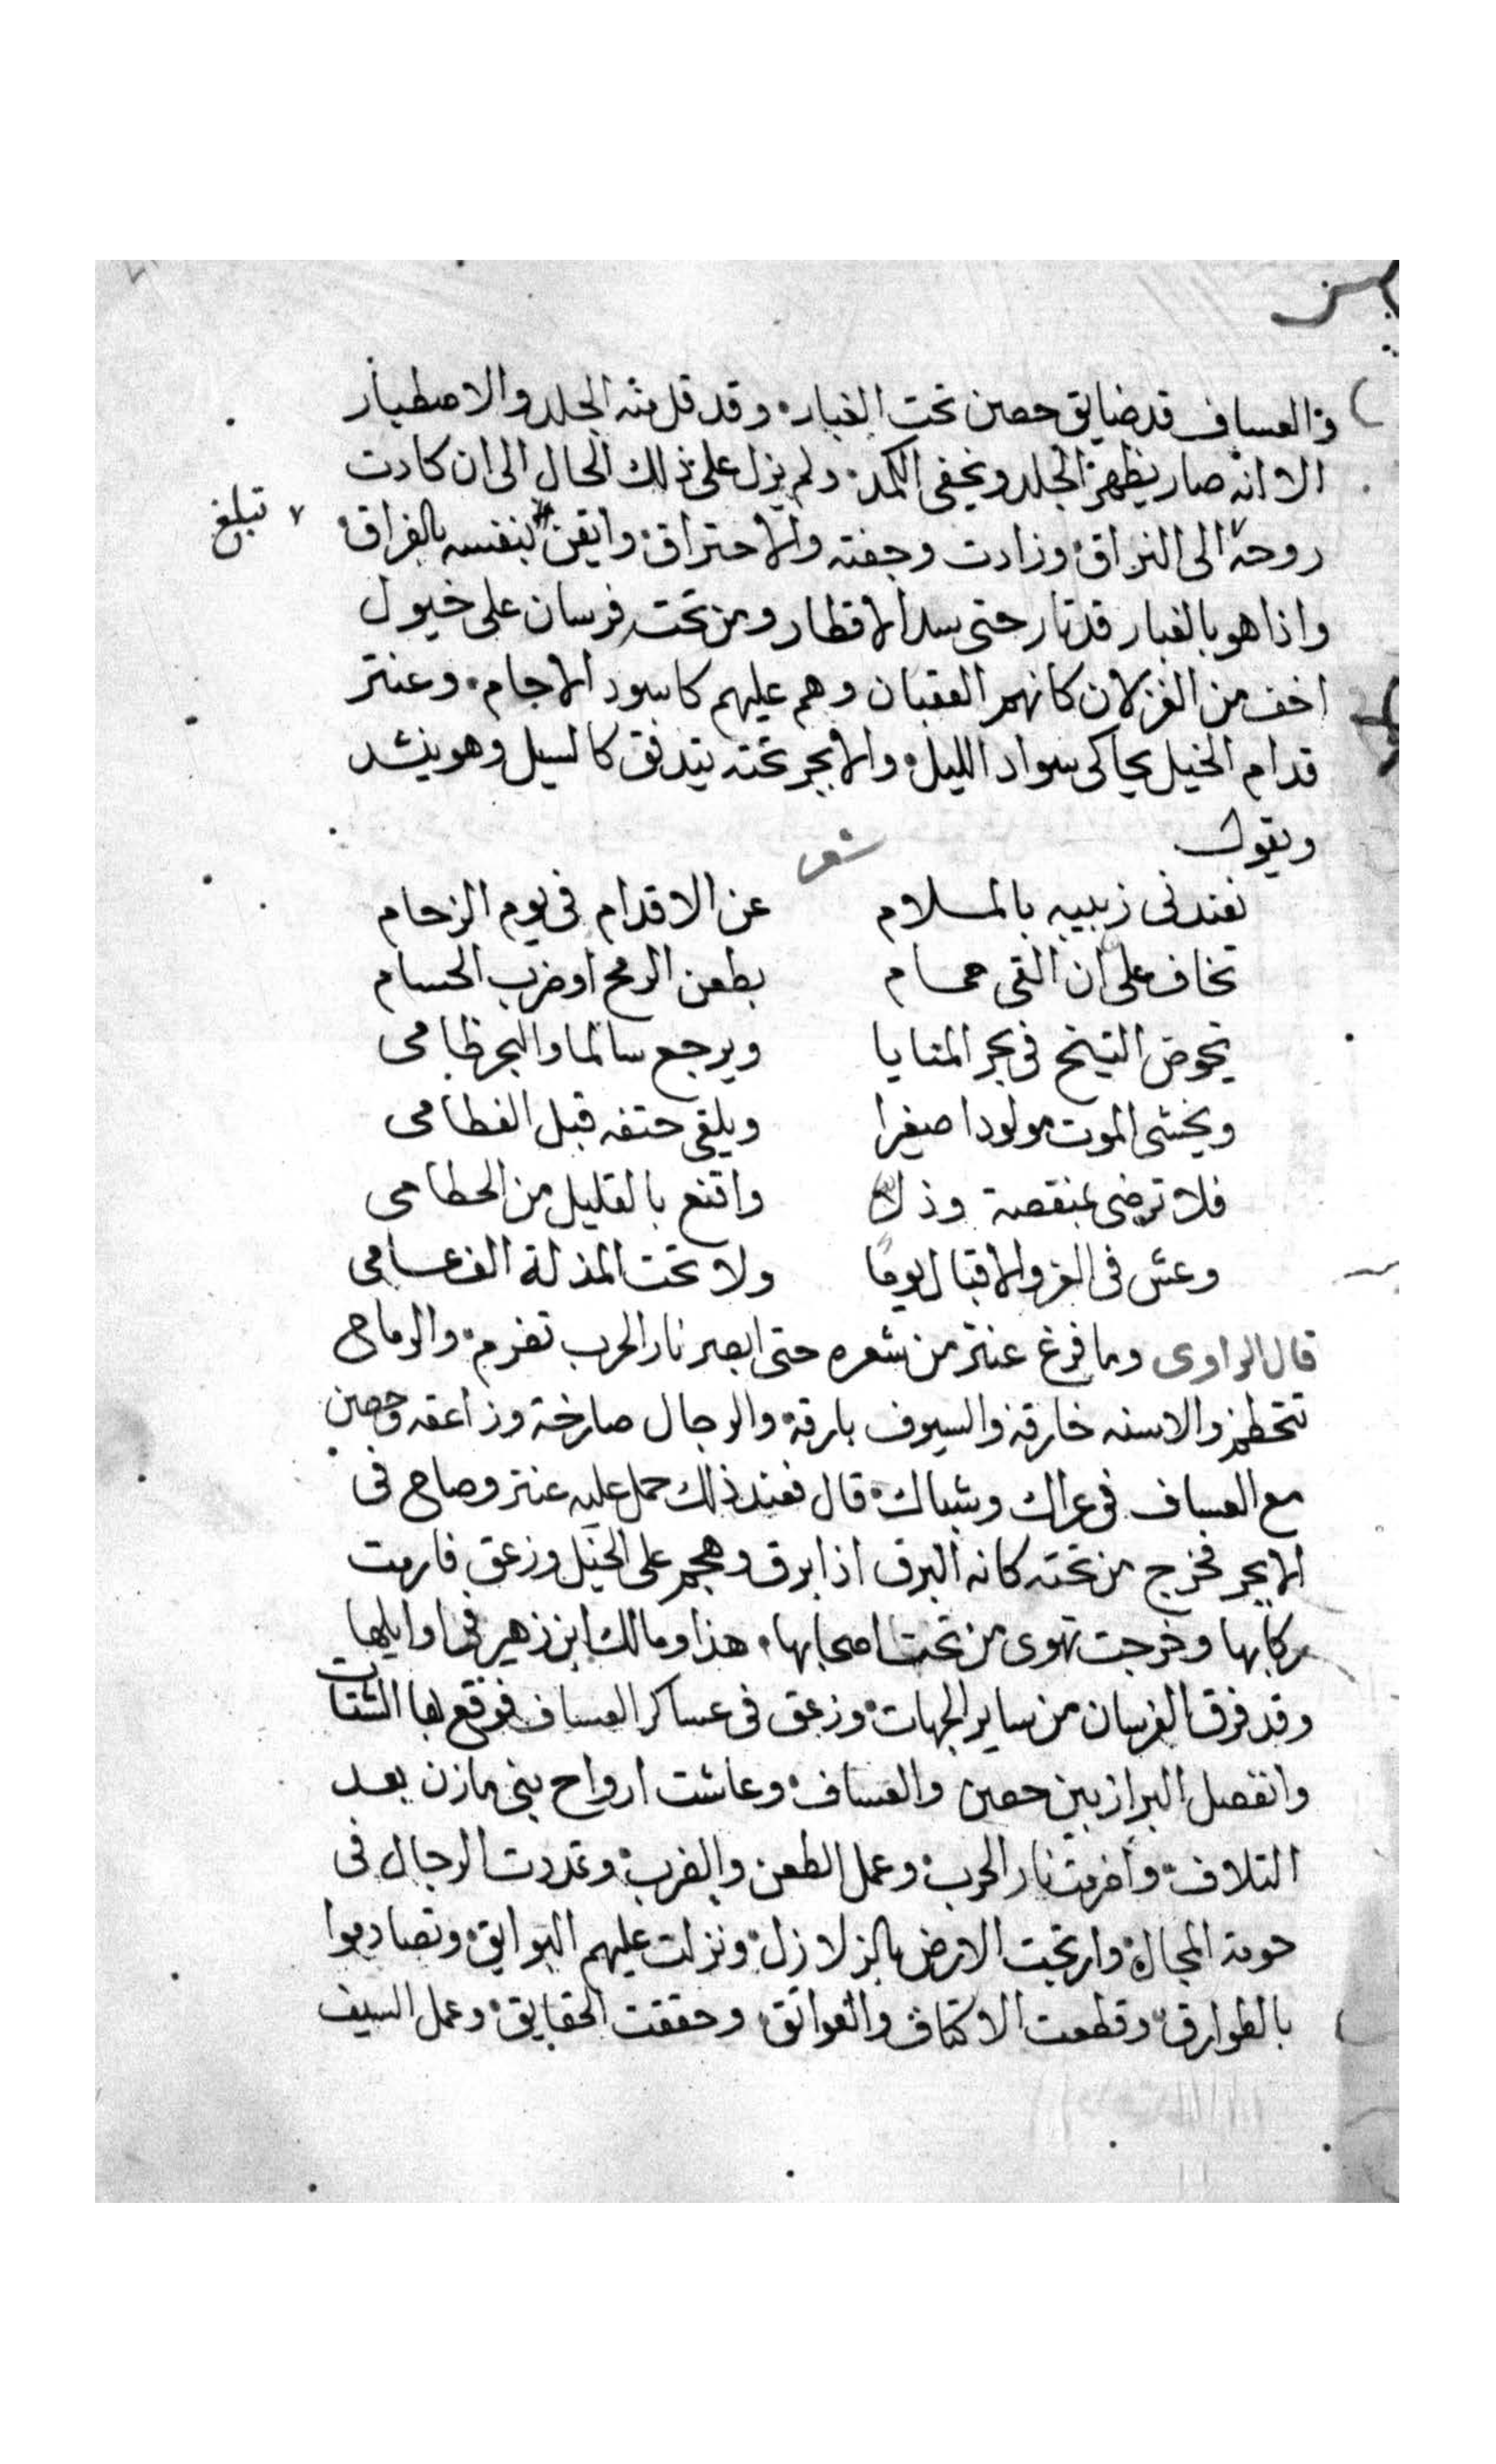 والعساف قد ضايق حصين تحت الغبار وقد قل منه الجلد والاصطبار
الا انه صار يظهر الجلد ويخفى الكمد ولم يزل على ذلك الحال الى ان كادت تبلغ
روحه الى التراق وزادت وجفته والاحتراق وايقن بنفسه بالفراق
واذا هو بالغبار قد ثار حتى سد الاقطار ومن تحته فرسان على خيول
اخف من الغزلان كانهم العقبان وهم عليهم كاسود الاجام وعنتر
قدام الخيل يحاكى سواد الليل والابجر تحته يتدفق كالسيل وهو ينشد
ويقول
شعر
تفندنى زبيبه بالملام عن الاقدام فى يوم الزحام
تخاف على ان القى حمام بطعن الرمح او ضرب الحسام
يخوض الشيخ فى بحر المنايا ويرجع سالما والبحر ظامى
ويخشى الموت مولودا صغيرا ويلقى حتفه قبل الفطامى
فلا ترضى بمنقصة وذل واقنع بالقليل من الحطامى
وعش فى العز والاقبال يوما ولا تحت المذلة الف عامى
قال الراوى وما فرغ عنتر من شعره حتى ابصر نار الحرب تضرم والرماح
تتحطم والاسنه خارقة والسيوف بارقة والرجال صارخة وزاعقه وحصين
مع العساف فى عراك وشباك قال فعند ذلك حمل عليه عنتر وصاح فى
الابجر فخرج من تحته كانه البرق اذا برق وهجم على الخيل وزعق فارمت
ركابها وخرجت تهوى من تحت اصحابها هذا ومالك ابن زهير فى اوايلها
وقد فرق الفرسان من ساير الجهات وزعق فى عساكر العساف فوقع بها الشتات
وانفصل البراز بين حصين والعساف وعاشت ارواح بنى مازن بعد
التلاف واضرمت نار الحرب وعمل الطعن والضرب وتمددت الرجال فى
حومة المجال وارتجت الارض بالزلازل ونزلت عليهم البوايق وتصادموا
بالطوارق وقطعت الاكتاف والعواتق وحققت الحقايق وعمل السيف